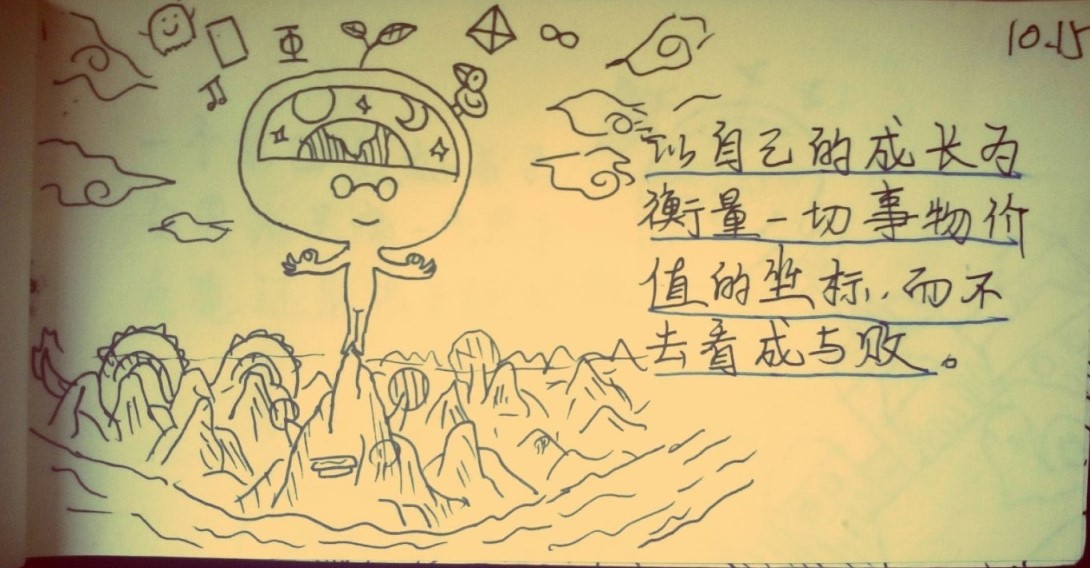 10.15
以自己的成长为
衡量一切事物价
值的坐标,而不
去看成与败。